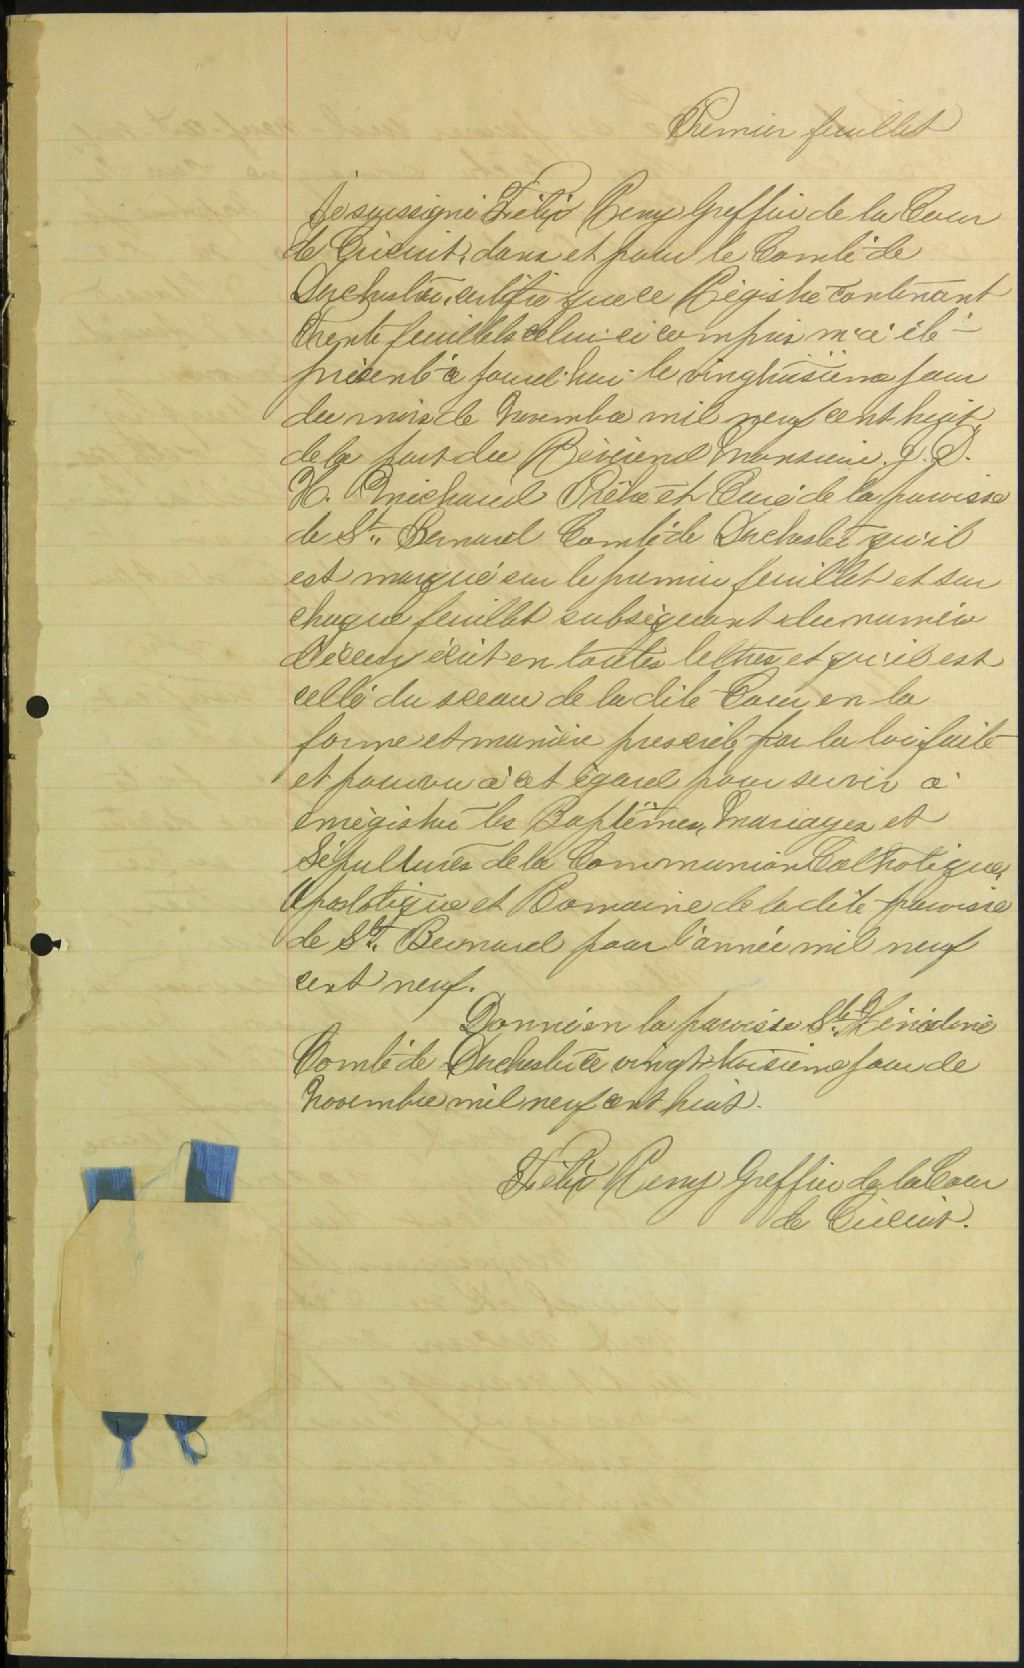 Premier feuillet
Je soussigné Félix Remy Greffier de la Cour
de Circuit, dans et pour le Comté de
Dorchester, certifie que ce Régistre contenant
trente feuillets celui-ci compris m'a été
présenté aujourd'hui le vingttroisième jour
du mois de Novembre mil neuf cent huit,
de la part du Révérend Monsieur J. D.
H. Michaud Prêtre et Curé de la paroisse
de St. Bernard Comté de Dorchester qu'il
est marqué sur le premier feuillet et sur
chaque feuillet subséquent du numéro
d'iceux écrit en toutes lettres et qu'il est
cellé du sceau de la dite Cour, en la
forme et manière prescrite par la loi faite
et pourvu à cet égard pour servir à
enrégistrer les Baptêmes, Mariages et
Sépultures de la Communion Catholique,
Apostolique et Romaine de la dite paroisse
de St. Bernard pour l'année mil neuf
cent neuf.
Donné en la paroisse Ste Hénédine
Comté de Dorchester ce vingt-troisième jour de
Novembre mil neuf cent huit.
Félix Remy Greffier de la Cour
de Circuit.